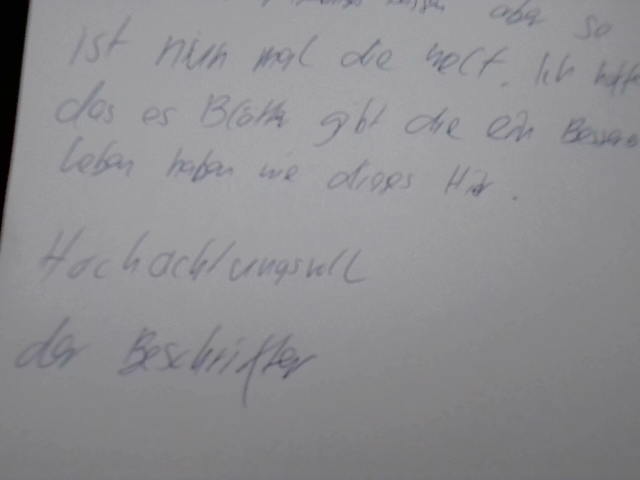 aber so
ist nun mal die welt. Ich hoffe
das es Blätter gibt die ein Besseres
leben haben wie dieses Hir.
Hochachtungsvoll
der Beschrifter